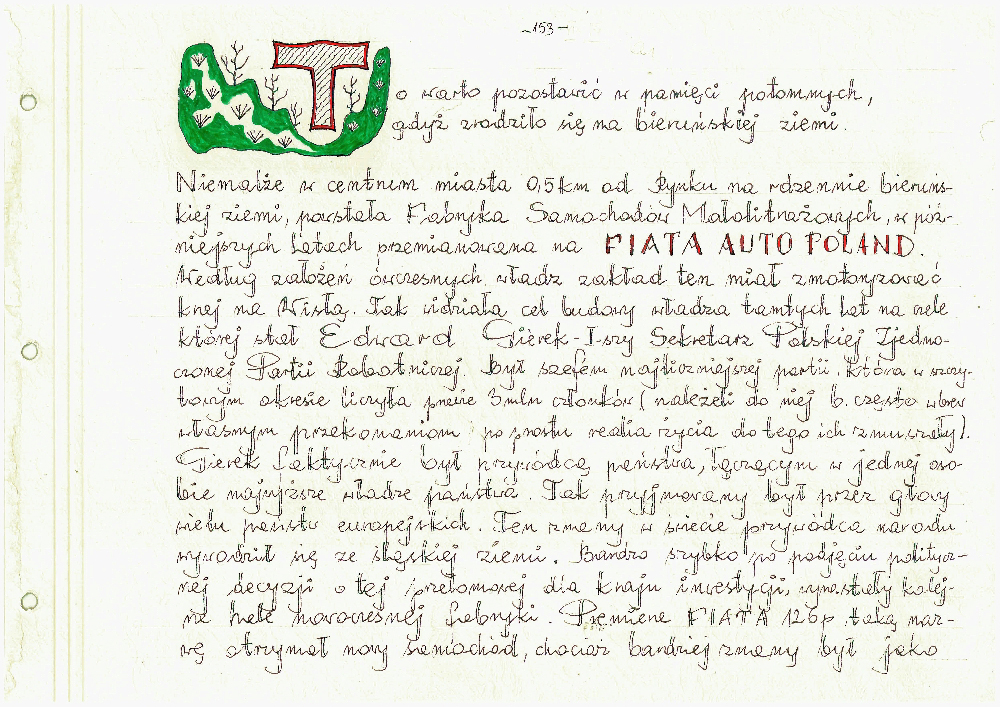 -153-
To warto pozostawić w pamięci potomnych,
gdyż zrodziło się na bieruńskiej ziemi.
Niemalże w centrum miasta 0,5km od Rynku na rdzennie bieruńs-
kiej ziemi, powstała Fabryka Samochodów Małolitrażowych, w póź-
niejszych latach przemianowana na FIATA AUTO POLAND.
Według założeń ówczesnych władz zakład ten miał zmotoryzować
kraj na Wisłą. Tak widziała cel budowy władza tamtych lat na czele
której stał Edward Gierek-I-szy Sekretarz Polskiej Zjedno-
czonej Partii Robotniczej. Był szefem najliczniejszej partii, która w szczy-
towym okresie liczyła prawie 3mln członków (należeli do niej b. często wbrew
własnym przekonaniom po prostu realia życia do tego ich zmuszały).
Gierek faktycznie był przywódcą państwa, łączącym w jednej oso-
bie najwyższe władze państwa. Tak przyjmowany był przez głowy
wielu państw europejskich. Ten znany w świecie przywódca narodu
wywodził się ze śląskiej ziemi. Bardzo szybko po podjęciu politycz-
nej decyzji o tej przełomowej dla kraju inwestycji, wyrastały kolej-
ne hale nowoczesnej fabryki. Premiere FIATA 126p taką naz-
wę otrzymał nowy samochód, chociaż bardziej znany był jako